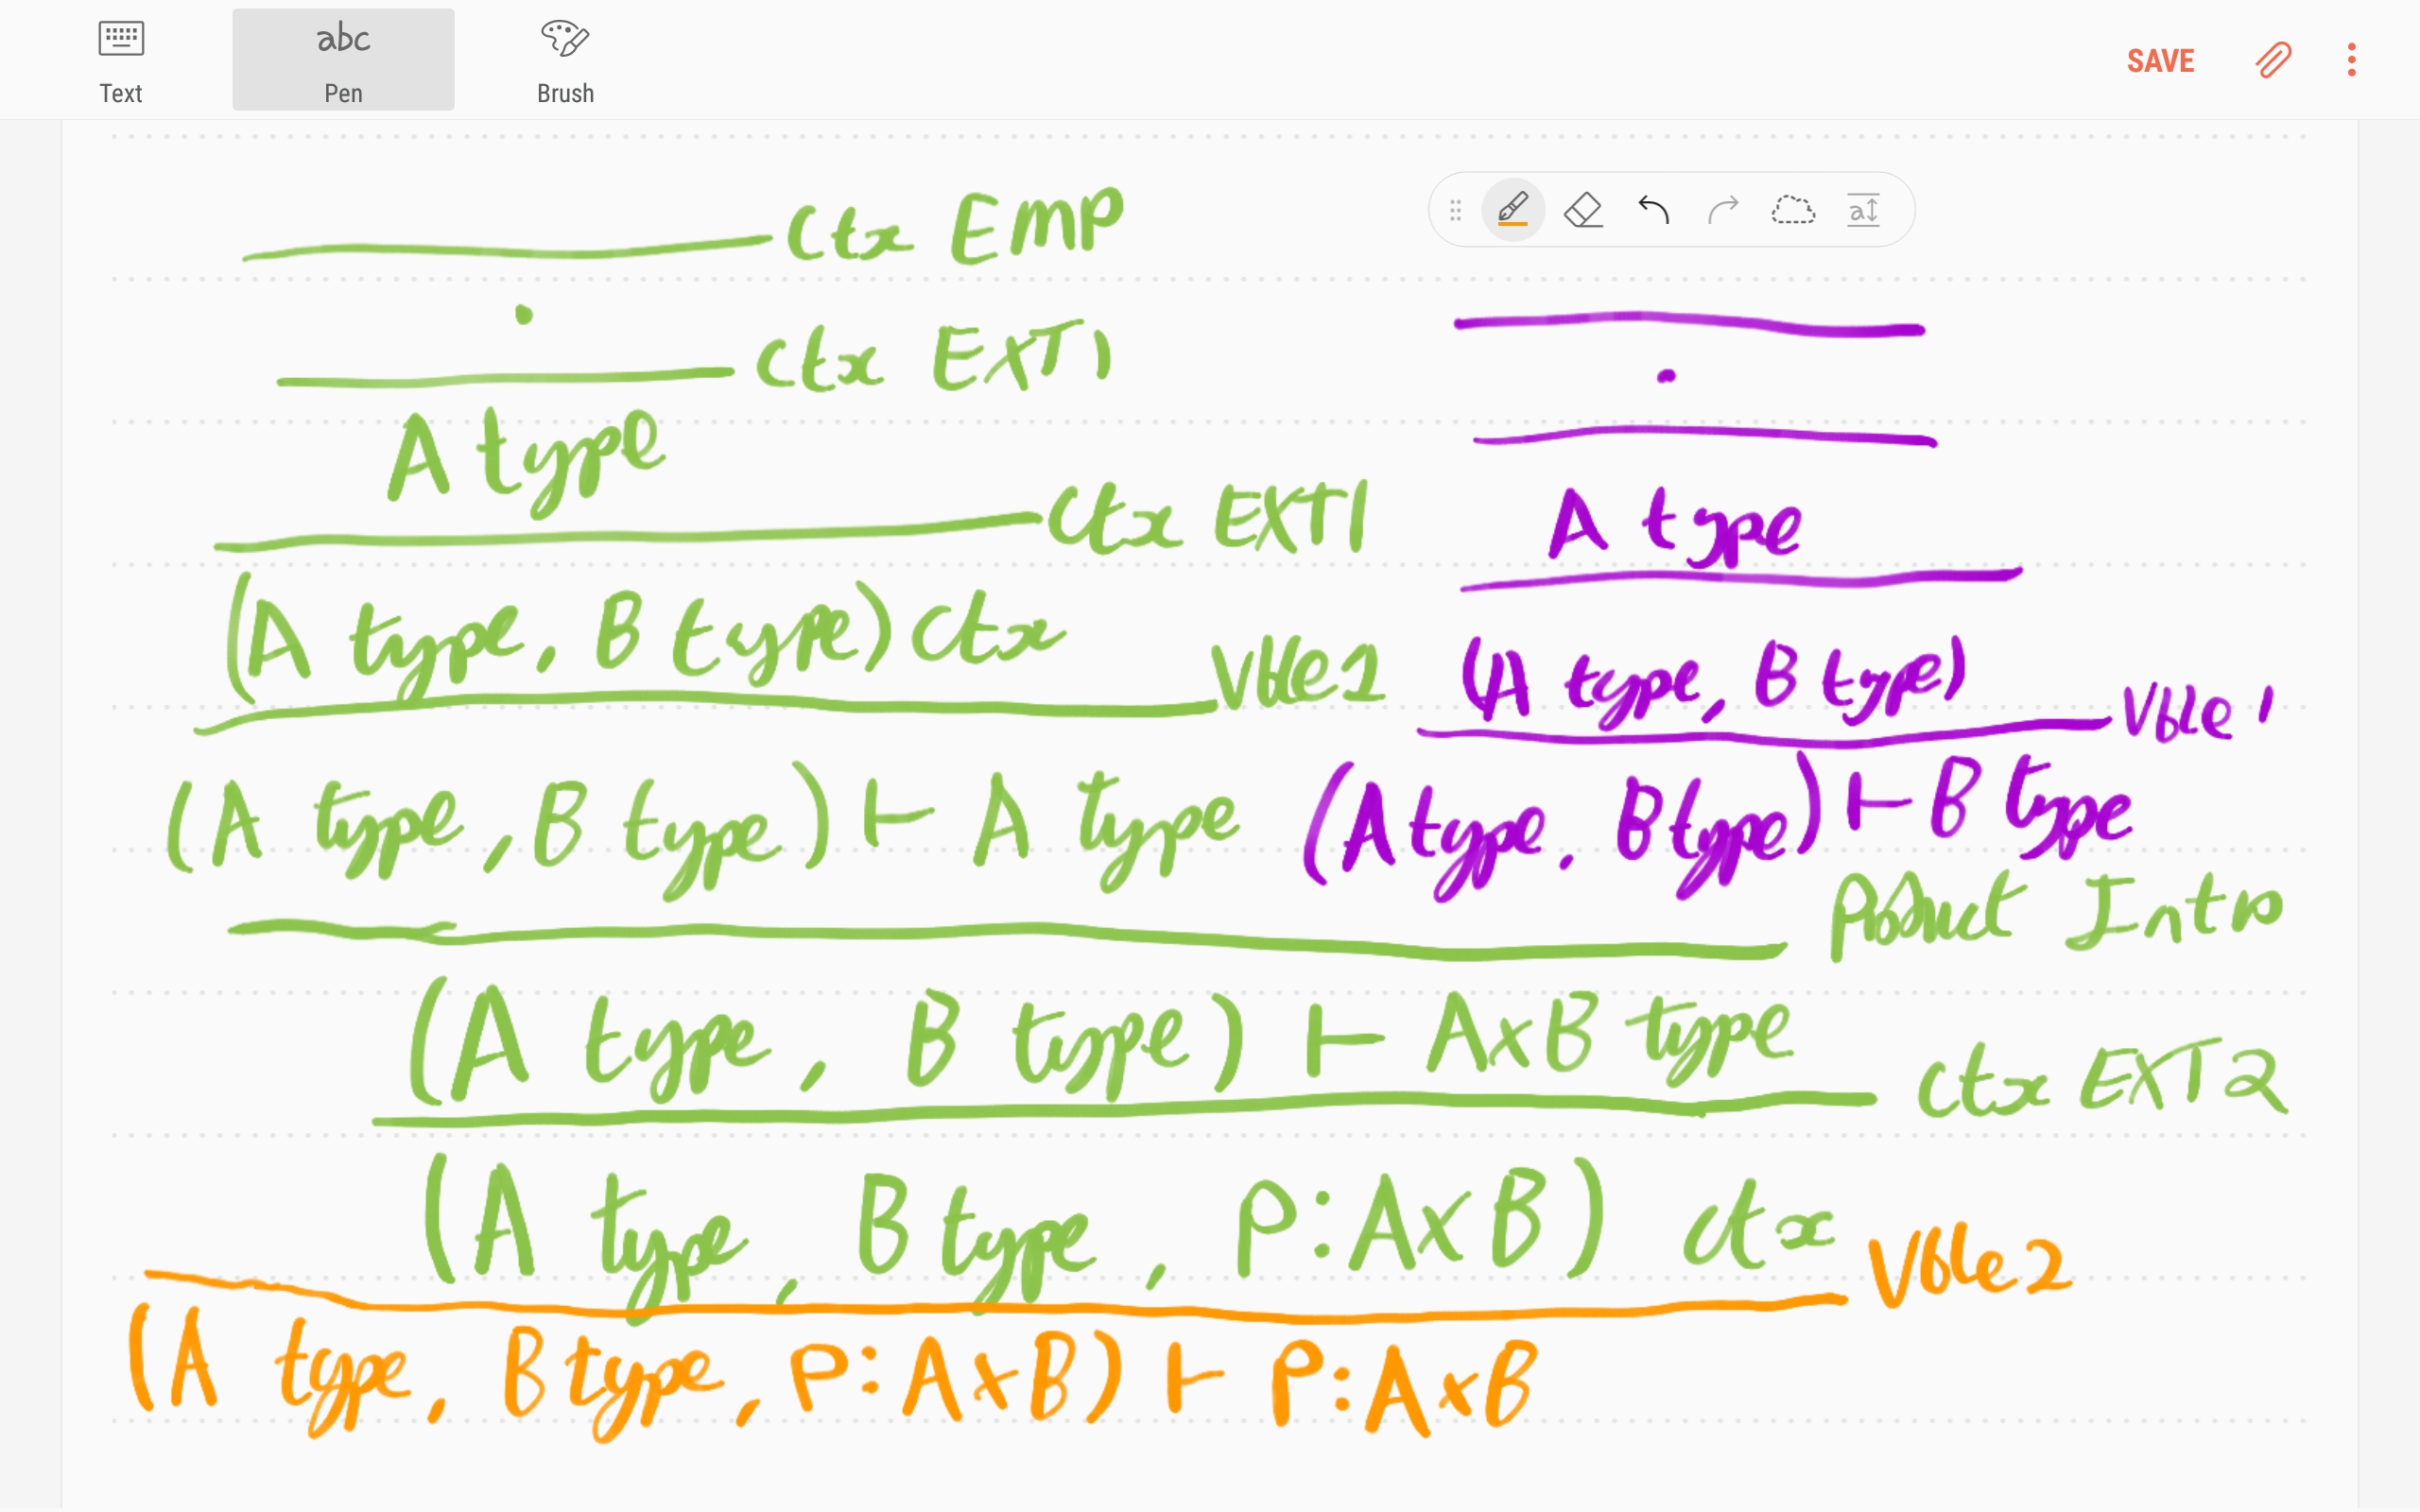 Text
abc
Pen
Brush
SAVE
Ctx EMP
.
Ctx EXT1
A type
Ctx EXT1
(A type, B type) Ctx
Vble2
(A type, B type) ⊢ A type
.
A type
(A type, B type)
Vble 1
(A type, B type) ⊢ B type
Product Intro
(A type, B type) ⊢ A×B type
Ctx EXT2
(A type, B type, P:A×B) ctx
Vble2
(A type, B type, P:A×B) ⊢ P:A×B